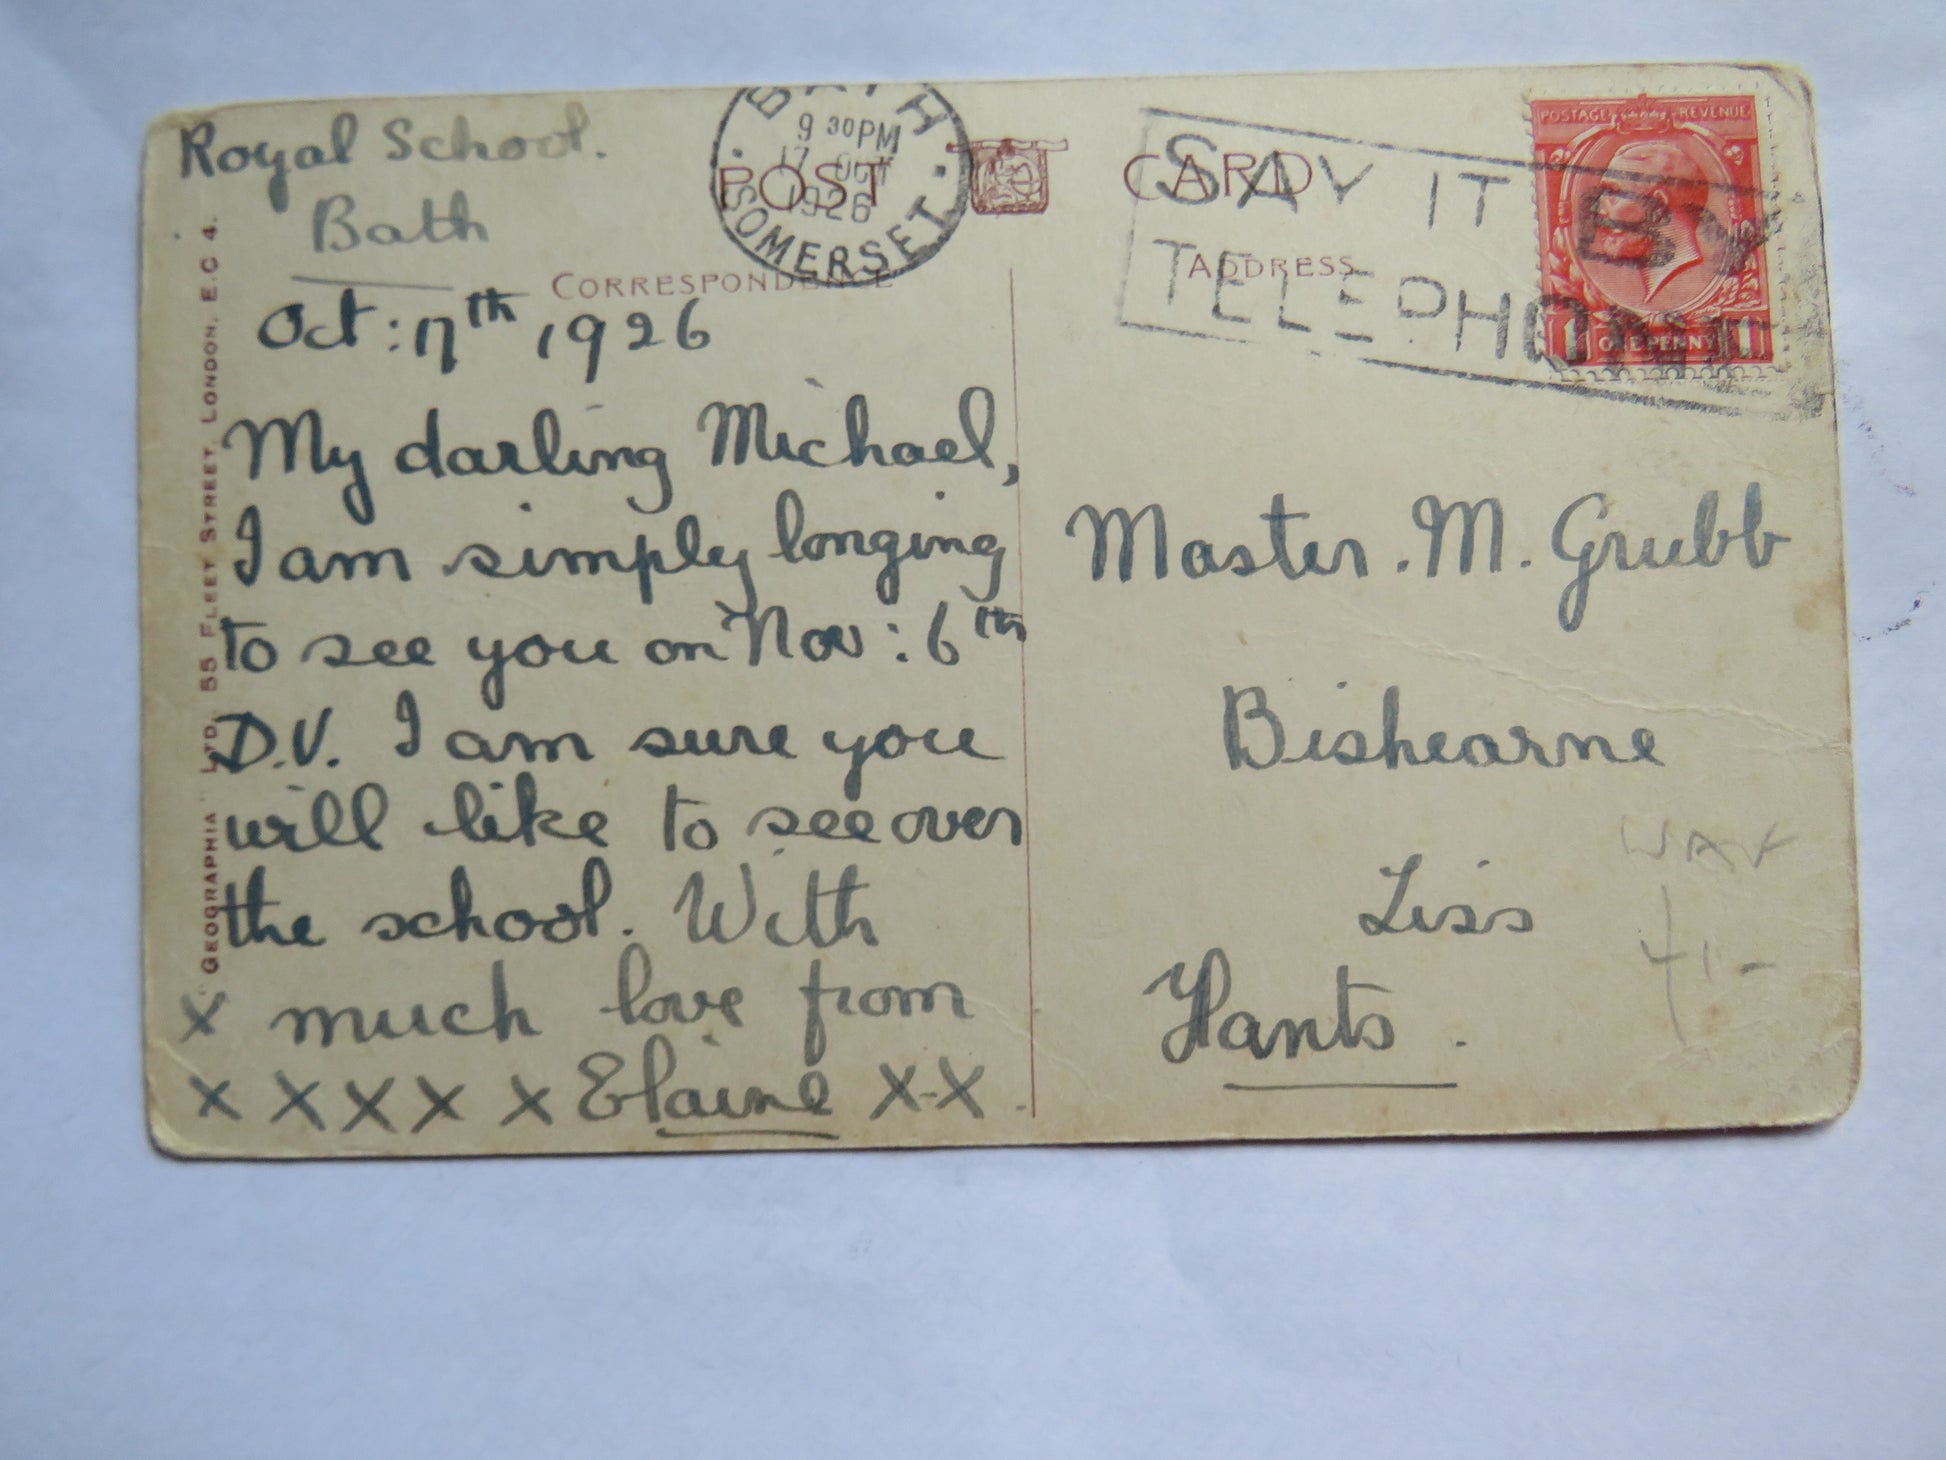 Royal School.
Bath
BATH
9 30PM
17 OCT
1926
SOMERSET
POST CARD
CORRESPONDENCE
ADDRESS
SAY IT BY
TELEPHONE
POSTAGE REVENUE
1 ONE PENNY 1
Oct: 17th 1926
My darling Michael,
I am simply longing
to see you on Nov: 6th
D.V. I am sure you
will like to see over
the school. With
x much love from
x x x x x Elaine x-x.
Master. M. Grubb
Bishearne
Liss
Hants.
"GEOGRAPHIA" LTD. 55 FLEET STREET, LONDON, E.C 4.